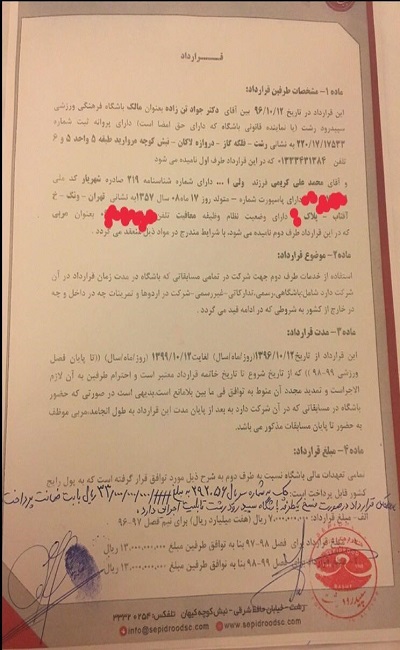 قـــرارداد
ماده ۱- مشخصات طرفین قرارداد:
این قرارداد در تاریخ ۹۶/۱۰/۱۲ بین آقای دکتر جواد تن زاده بعنوان مالک باشگاه فرهنگی ورزشی
سپیدرود رشت (یا نماینده قانونی باشگاه که دارای حق امضا است) دارای پروانه ثبت شماره
۲۲۰/۱۷/۱۷۵۳۳ به نشانی رشت - فلکه گاز - دروازه لاکان - نبش کوچه مروارید طبقه ۵ واحد ۵ و ۶
تلفن ۰۱۳۳۳۴۳۱۳۸۴ که در این قرارداد طرف اول نامیده می شود
و آقای محمد علی کریمی فرزند ولی ا ... دارای شماره شناسنامه ۲۱۹ صادره شهریار کد ملی
دارای پاسپورت شماره - متولد روز ۱۷ ماه ۰۸ سال ۱۳۵۷ به نشانی تهران - ونک - خ
آفتاب - پلاک دارای وضعیت نظام وظیفه معافیت تلفن بعنوان مربی
که در این قرارداد طرف دوم نامیده می شود، با شرایط مندرج در مواد ذیل منعقد می گردد .
ماده۲- موضوع قرارداد:
استفاده از خدمات طرف دوم جهت شرکت در تمامی مسابقاتی که باشگاه در مدت زمان قرارداد در آن
شرکت دارد شامل:باشگاهی،رسمی،تدارکاتی،غیررسمی-شرکت در اردوها و تمرینات چه در داخل و چه
در خارج از کشور به شروطی که در ادامه قید می گردد .
ماده۳- مدت قرارداد:
این قرارداد از تاریخ ۱۳۹۶/۱۰/۱۲ (روز/ماه/سال) لغایت ۱۳۹۹/۱۰/۱۲ (روز/ماه/سال) ((تا پایان فصل
ورزشی ۹۹-۹۸)) که از تاریخ شروع تا تاریخ خاتمه قرارداد معتبر است و احترام طرفین به آن لازم
الاجراست و تمدید مجدد آن منوط به توافق فی ما بین بلامانع است.بدیهی است در صورتی که حضور
باشگاه در مسابقاتی که در آن شرکت دارد به بعد از پایان مدت این قرارداد به طول انجامد،مربی موظف
به حضور تا پایان مسابقات مذکور می باشد.
ماده۴- مبلغ قرارداد:
تمامی تعهدات مالی باشگاه نسبت به طرف دوم به شرح ذیل مورد توافق قرار گرفته است که به پول رایج
کشور قابل پرداخت است:
چک به شماره سریال ۲۹۲۰۵۶ به مبلغ ۳۳/۰۰۰/۰۰۰/۰۰۰ ریال بابت ضمانت پرداخت
قرارداد در صورت فسخ یکطرفه باشگاه سپیدرود رشت قابلیت اجرایی دارد.
الف- مبلغ قرارداد: ۷.۰۰۰.۰۰۰.۰۰۰ ریال (هفت میلیارد ریال) برای نیم فصل ۹۷-۹۶
برای فصل ۹۸-۹۷ بنا به توافق طرفین مبلغ ۱۳.۰۰۰.۰۰۰.۰۰۰ ریال
برای فصل ۹۹-۹۸ بنا به توافق طرفین مبلغ ۱۳.۰۰۰.۰۰۰.۰۰۰ ریال
رشت - خیابان حافظ شرقی - نبش کوچه کیهان تلفکس: ۰۲۵۴ ۳۳۳۲
info@sepidroodsc.com www.sepidroodsc.com